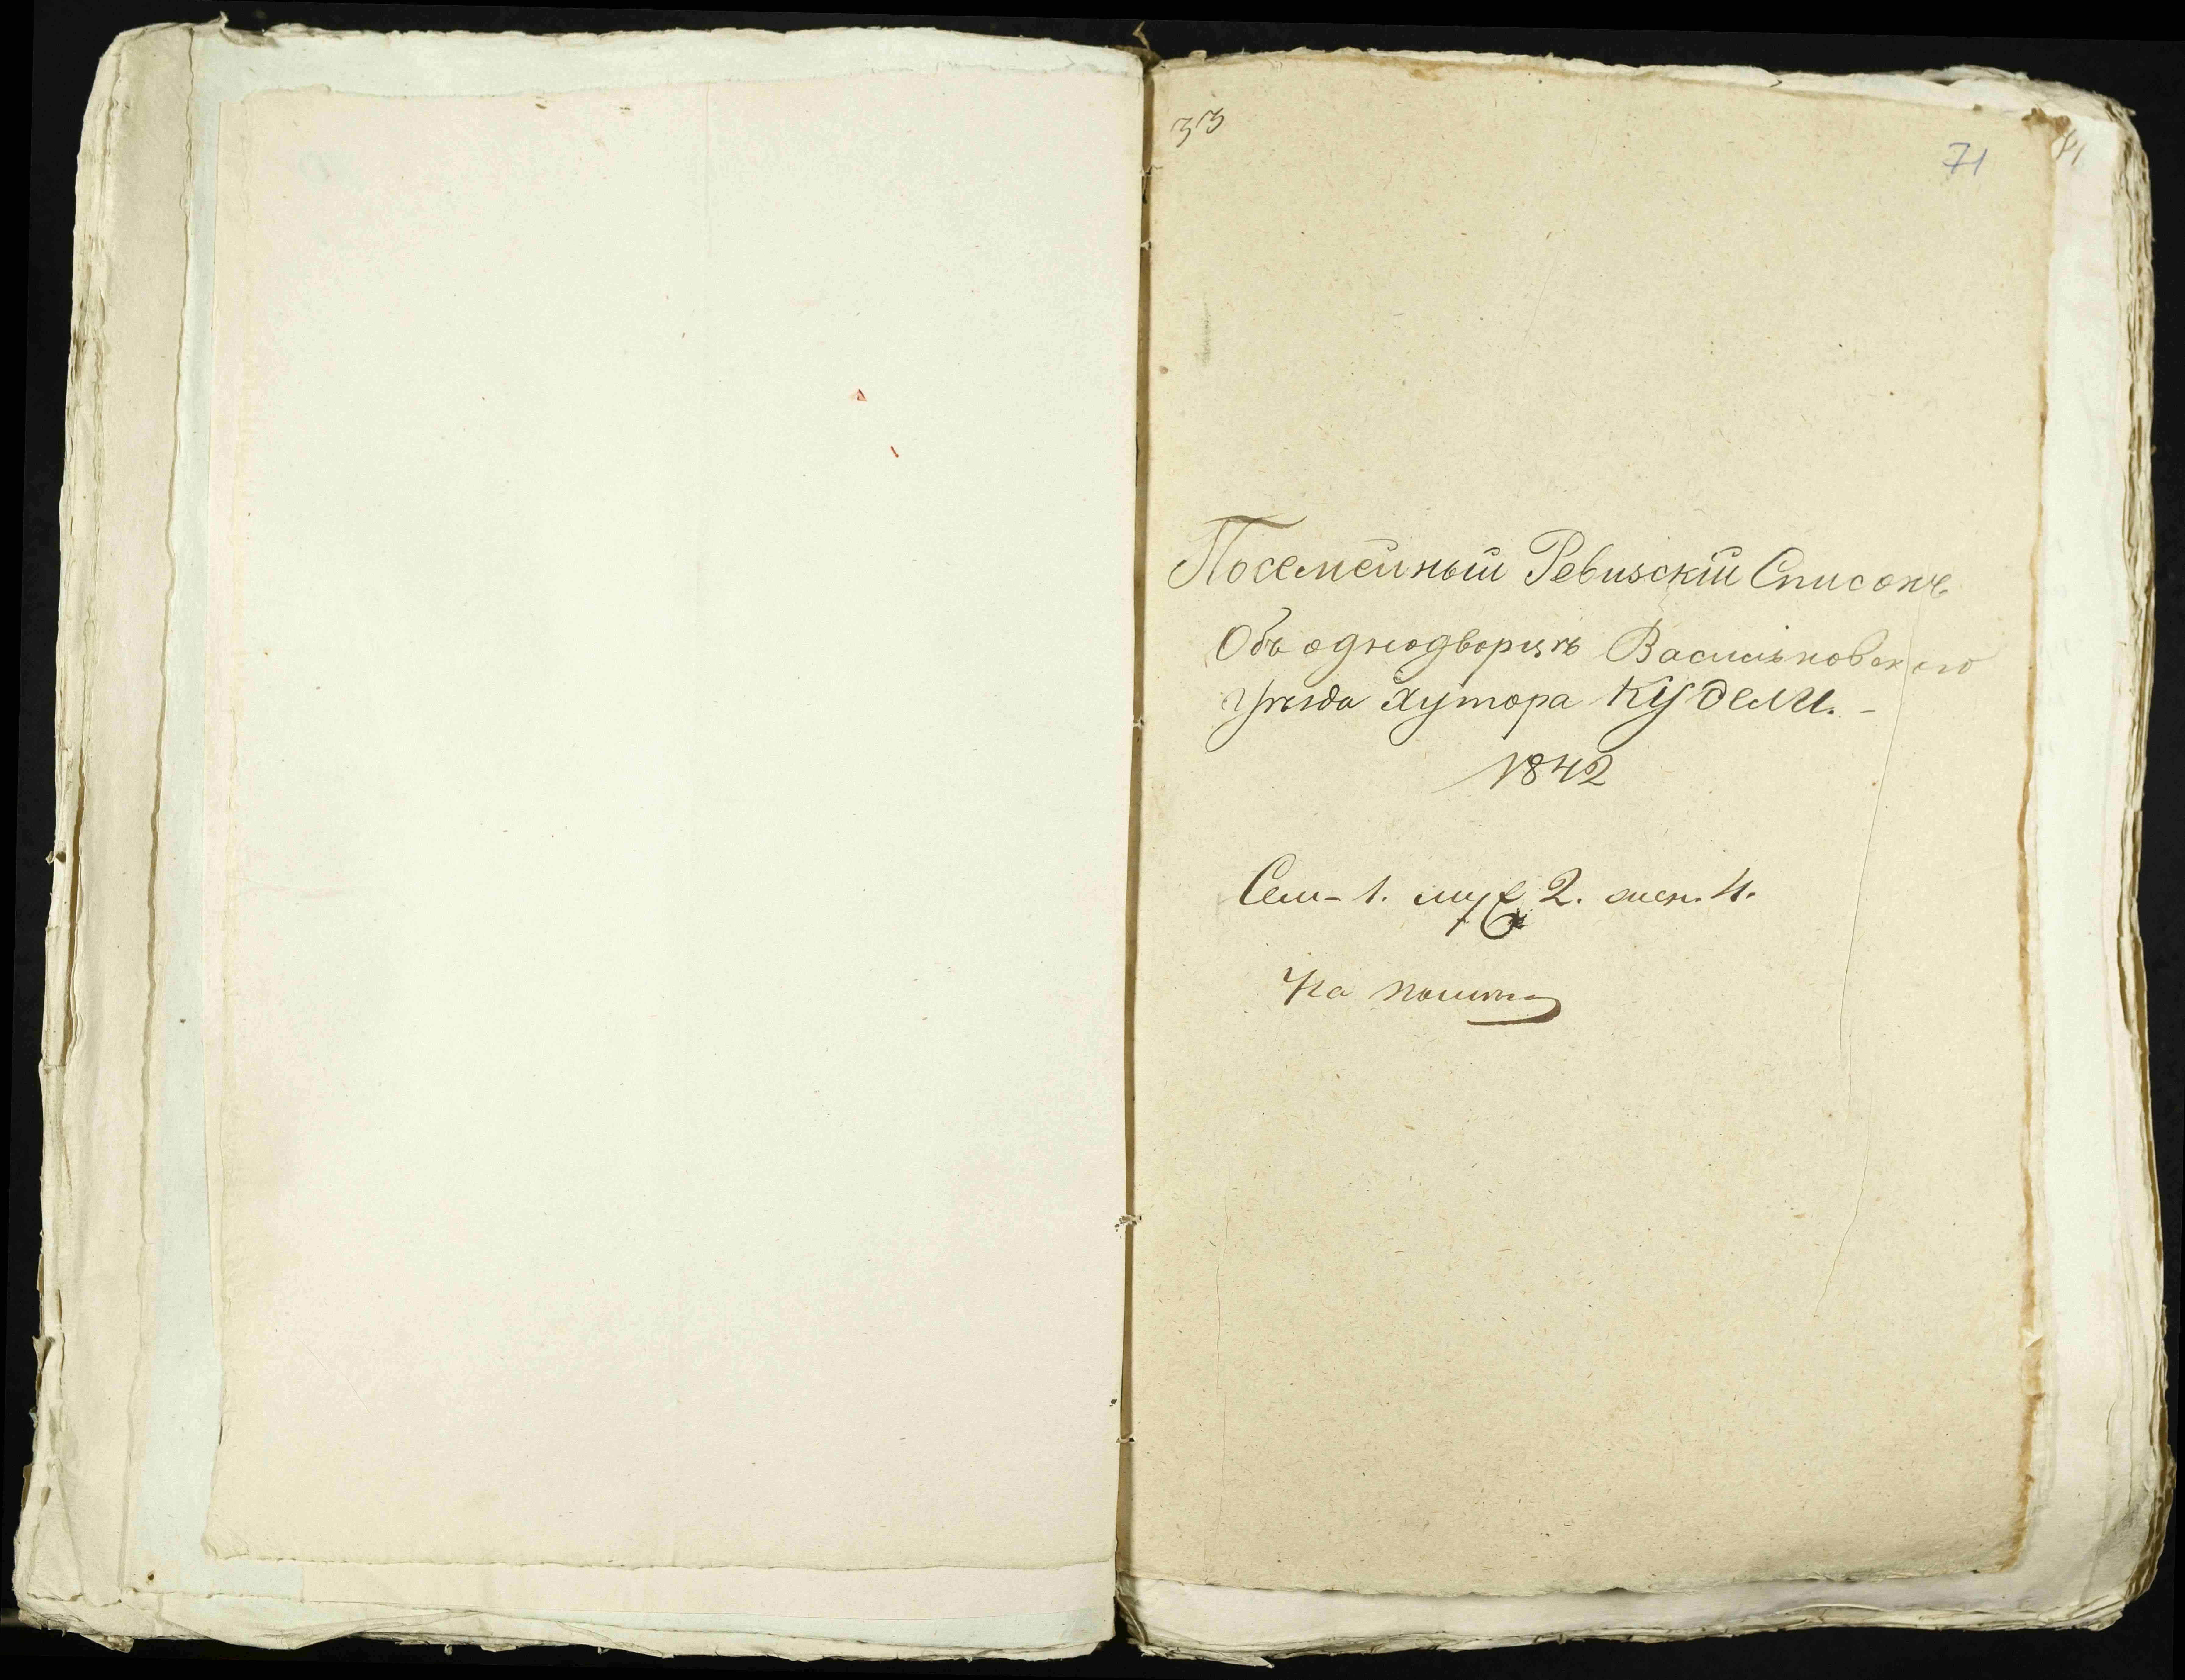 33
71
Посемейный Ревизскій Списокъ
Объ однодворцѣ Васильковскаго
уѣзда хутора Кудели. -
1842
Сем- 1. муж 2. жен. 4.
На